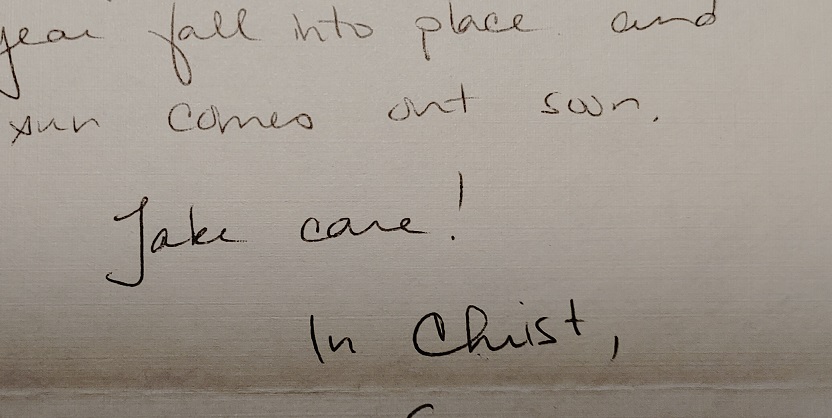 year fall into place and
sun comes out soon.
Take care!
In Christ,